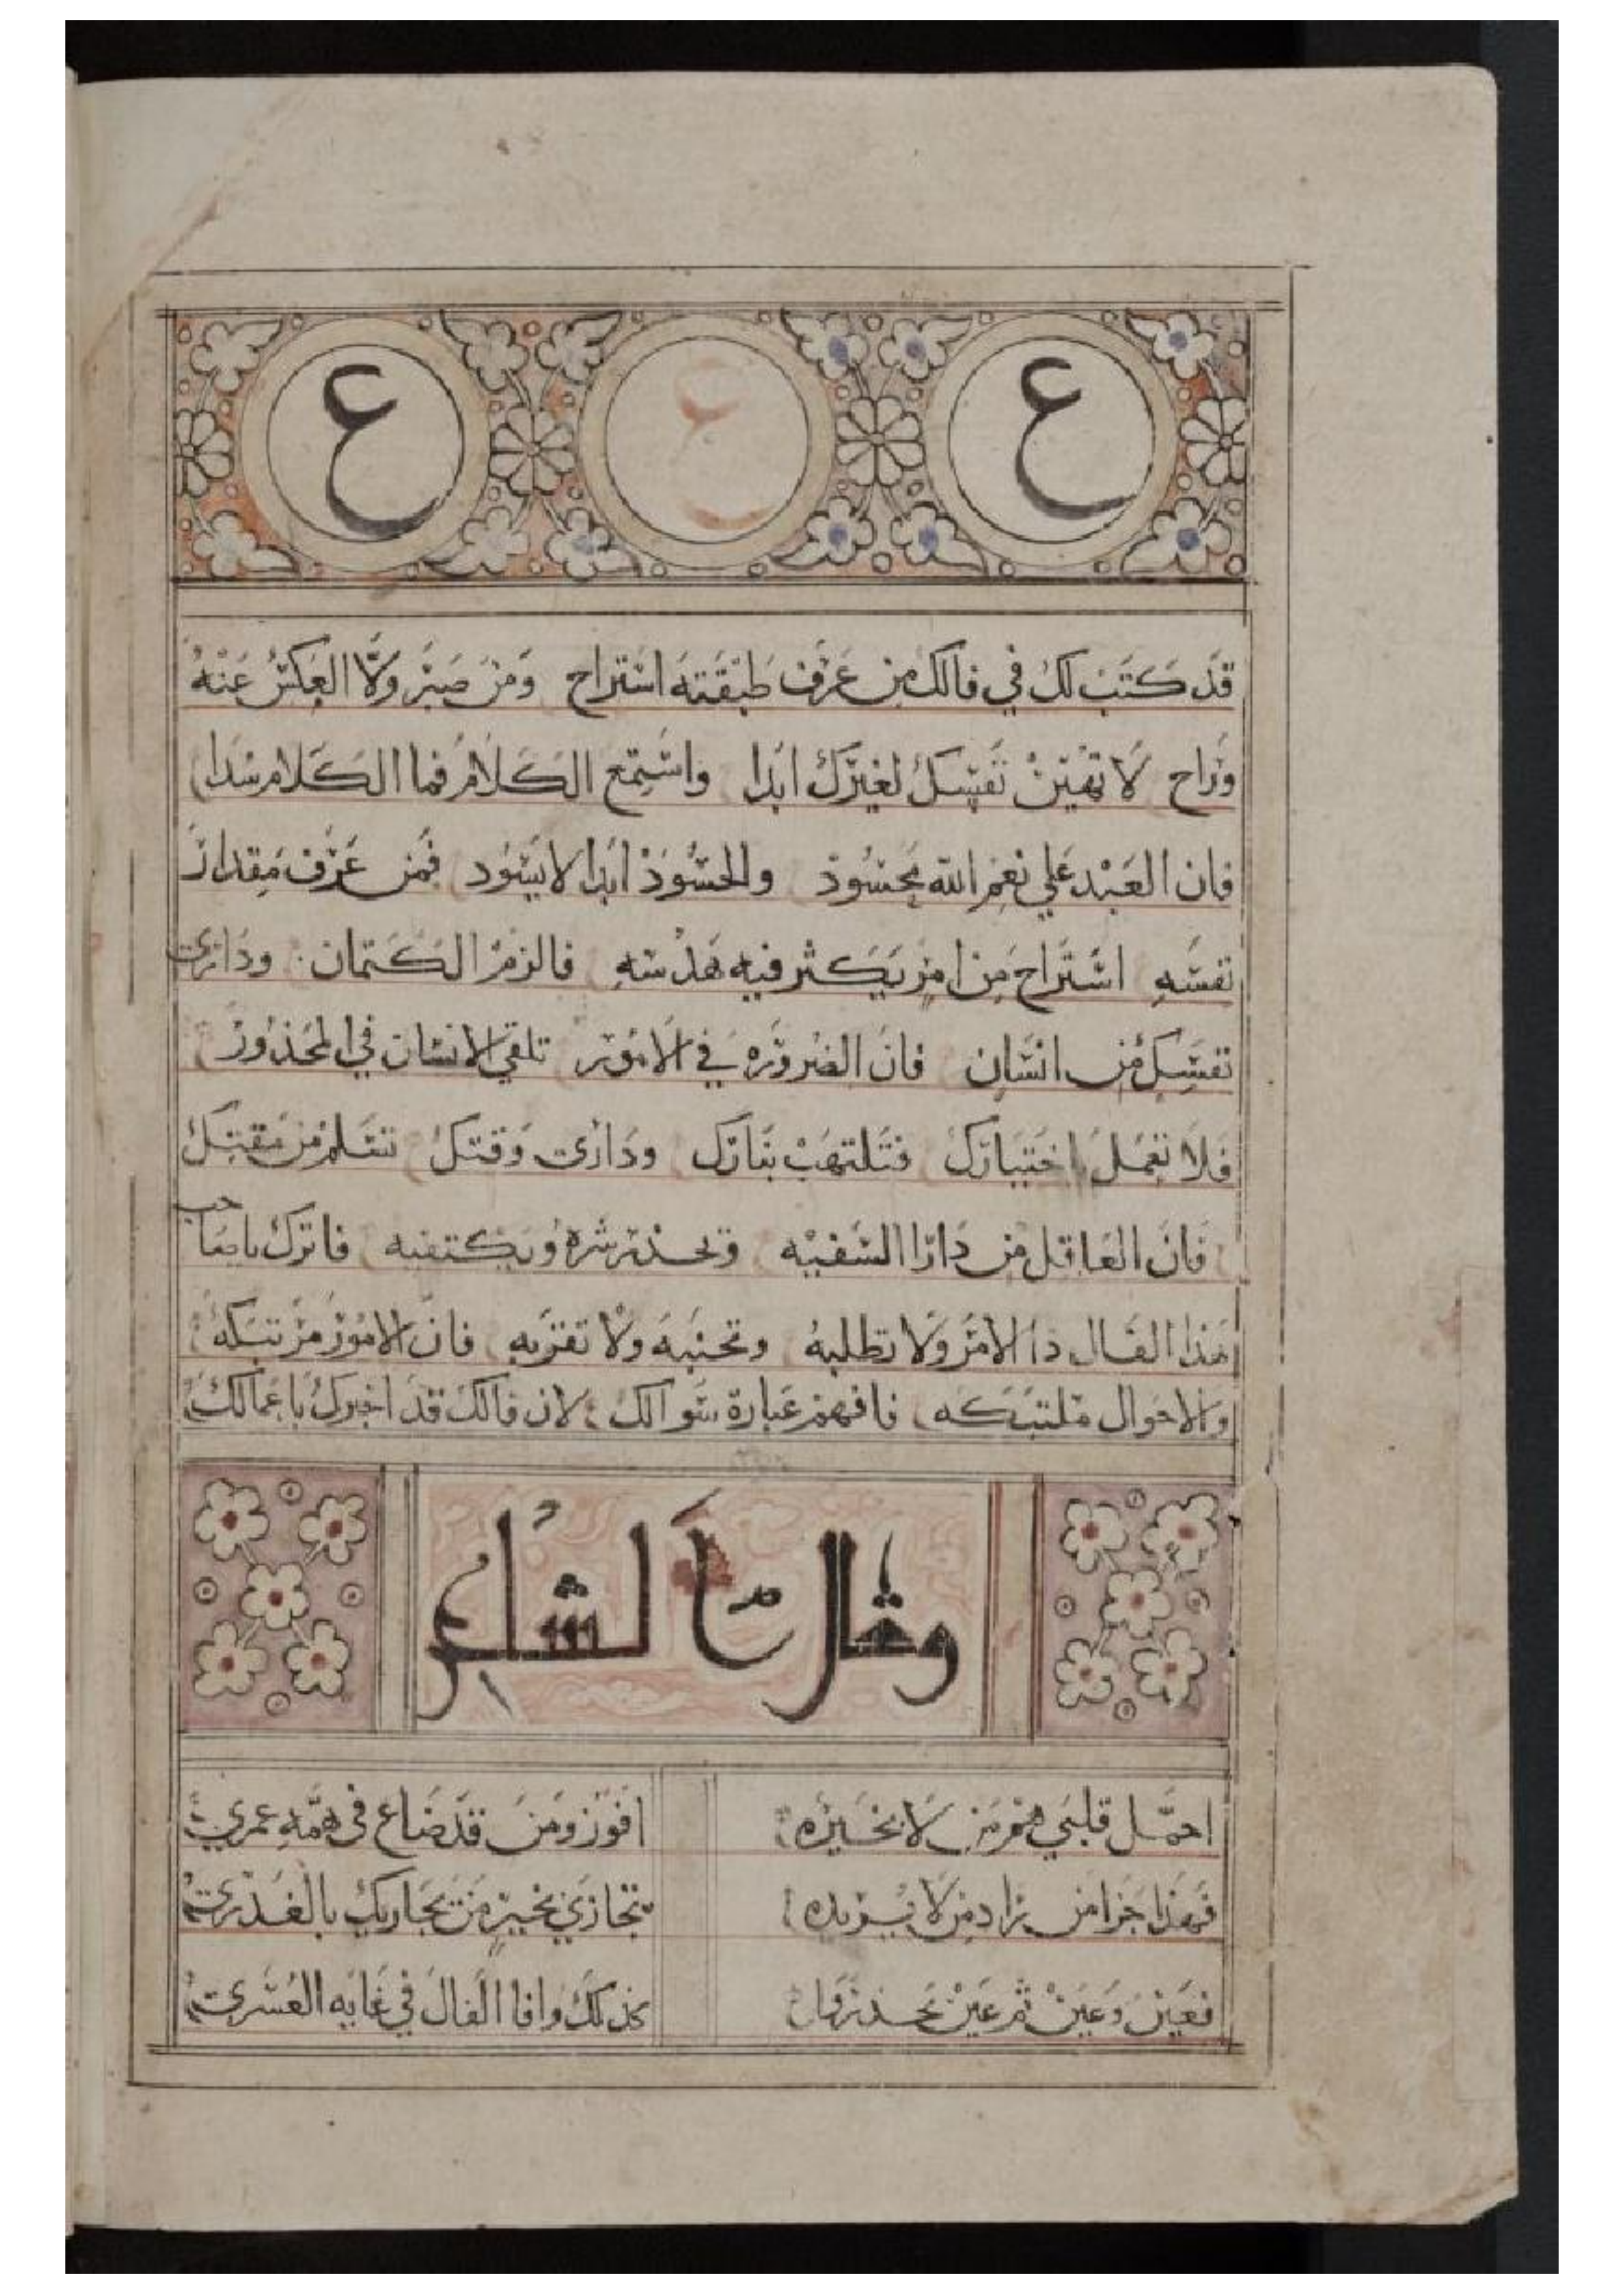 ع ع ع
قد كتب لك في فالك من عرف طبقته استراح ومن صبر ولا العكس عنه
وراح لا تهين نفسك لغيرك ابدا واستمع الكلام فما الكلام سدا
فان العبد علي نعم الله محسود والحسود ابدا لا يسود فمن عرف مقدار
نفسه استراح من امر يكثر فيه هدسه فالزم الكتمان وداري
نفسك من انسان فان الضروره في الامور تلقي الانسان في المحذور
فلا تعمل اختيارك فتلتهب بنارك وداري وقتك تسلم من مقتك
فان العاقل من دارا السفيه وتحذر شره ويكتفيه فاترك يا صاحب
هذا الفال ذا الامر ولا تطلبه وتجنبه ولا تقربه فان الامور مرتبكه
والاحوال ملتبكه فافهم عبارة سوالك لان فالك قد اخبرك باعمالك
وقال الشاعر
احمل قلبي هم من لا بخيره افوز ومن قد ضاع في همه عمري
فهذا جزا من زاد من لا يريده تجازي بخير من يجازيك بالغدري
فعين وعين ثم عين تحذرها كذلك وافا الفال في غايه العسري